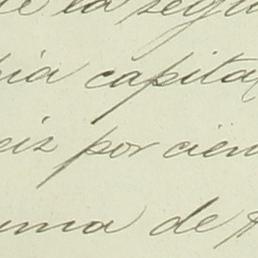 de la segu
bia capita
eis por cien
uma de